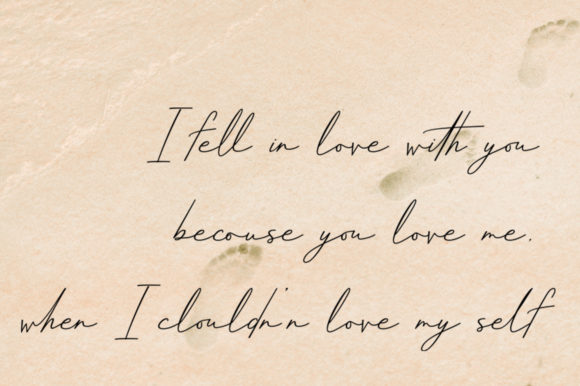 I fell in love with you
becouse you love me.
when I clouldn'n love my self